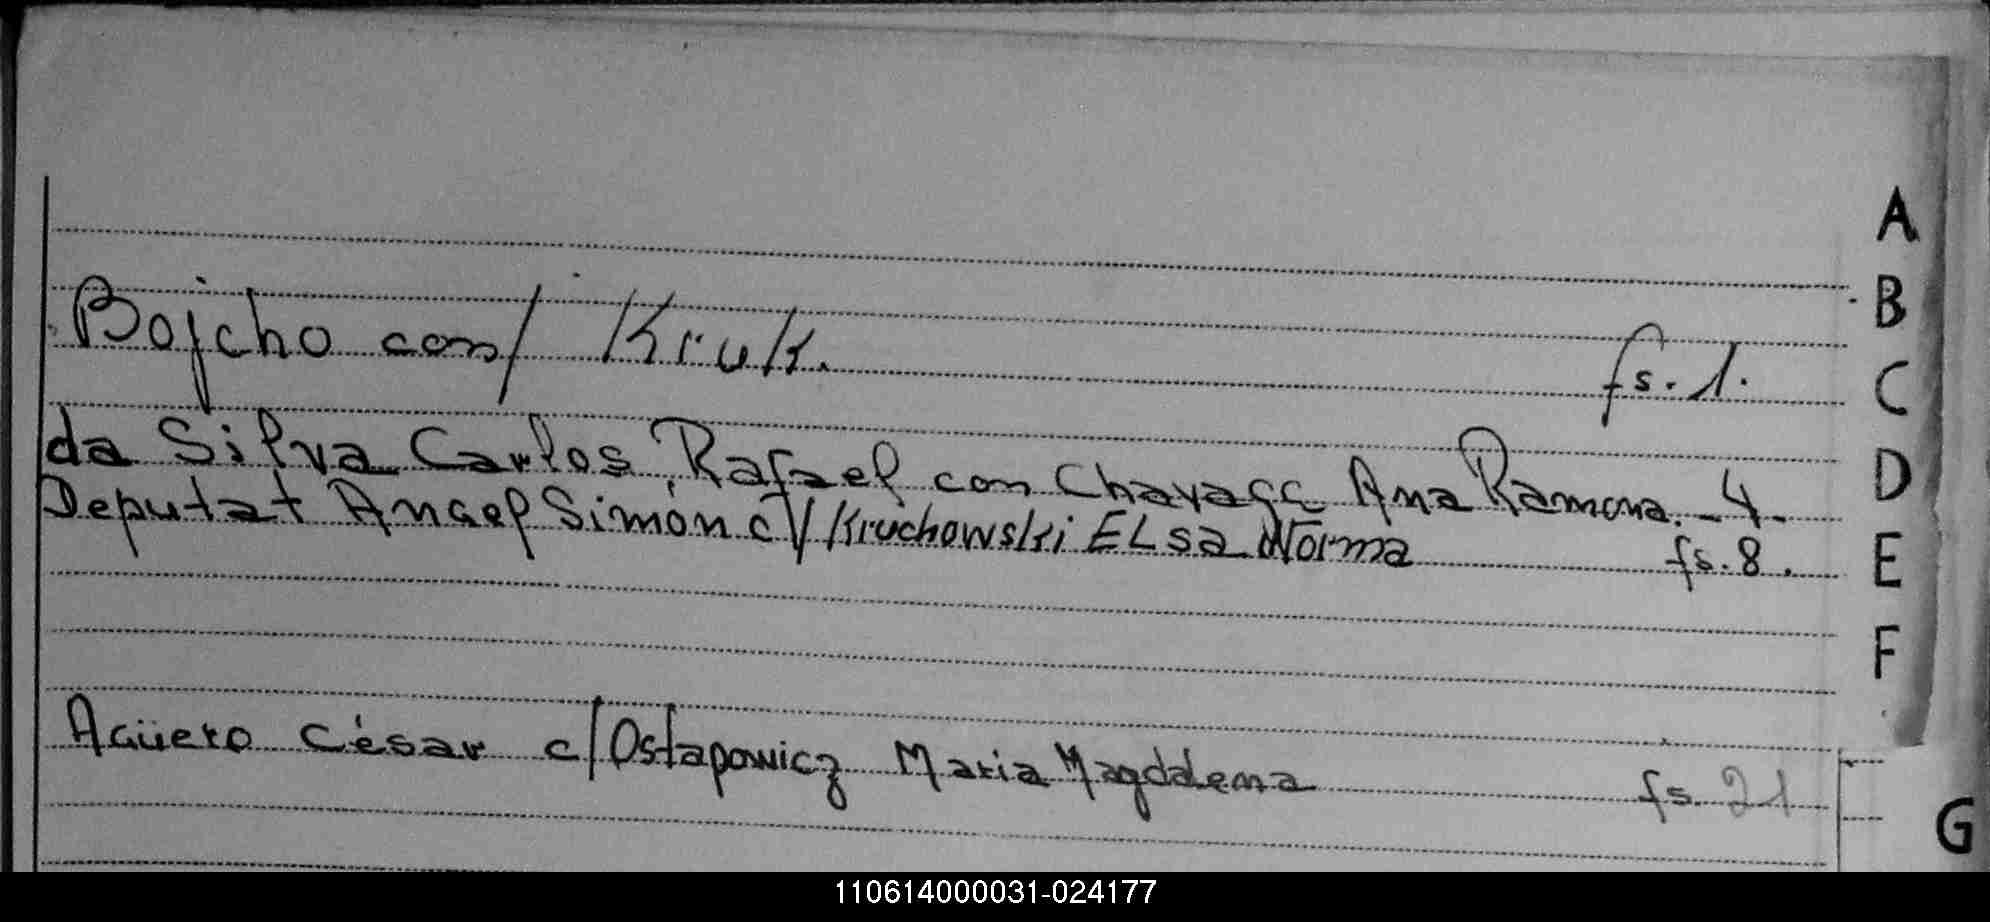 A
B
Bojcho con/ Kruk. fs. 1.
C
da Silva Carlos Rafael con Ana Ramona. - 4 -
D
Deputat Angel Simón c/ Kruchowski ELsa Norma fs. 8.
E
F
Agüero César c/ Ostapowicz Maria Magdalena fs. 21
G
110614000031-024177